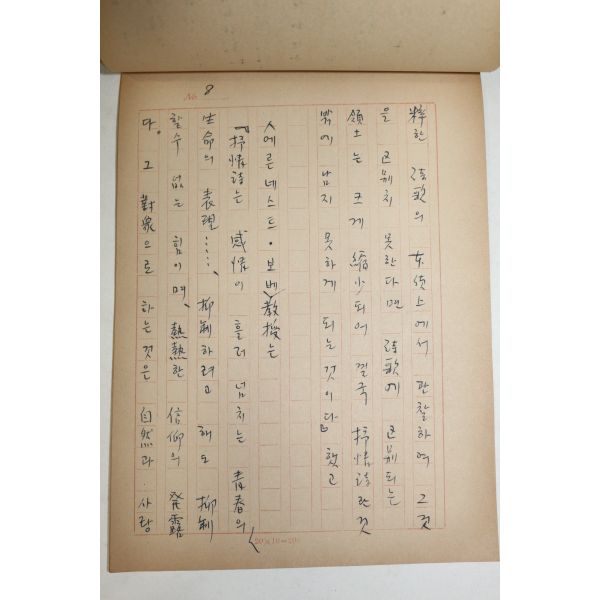 No. 8
粹한 詩歌의 本流上에서 관찰하여 그것
을 区別치 못한다면 詩歌에 区別되는
領土는 크게 縮少되어 결국 抒情詩란것
밖에 남지 못하게 되는 것이다』했고
人에른네스트·보베」敎授는
『抒情詩는 感情이 흘러 넘치는 青春의
生命의 表現……、抑制하려고 해도 抑制
할수 없는 힘이며、熱熱한 信仰의 発露
다。그 對象으로 하는것은 自然과·사랑
20×10=200